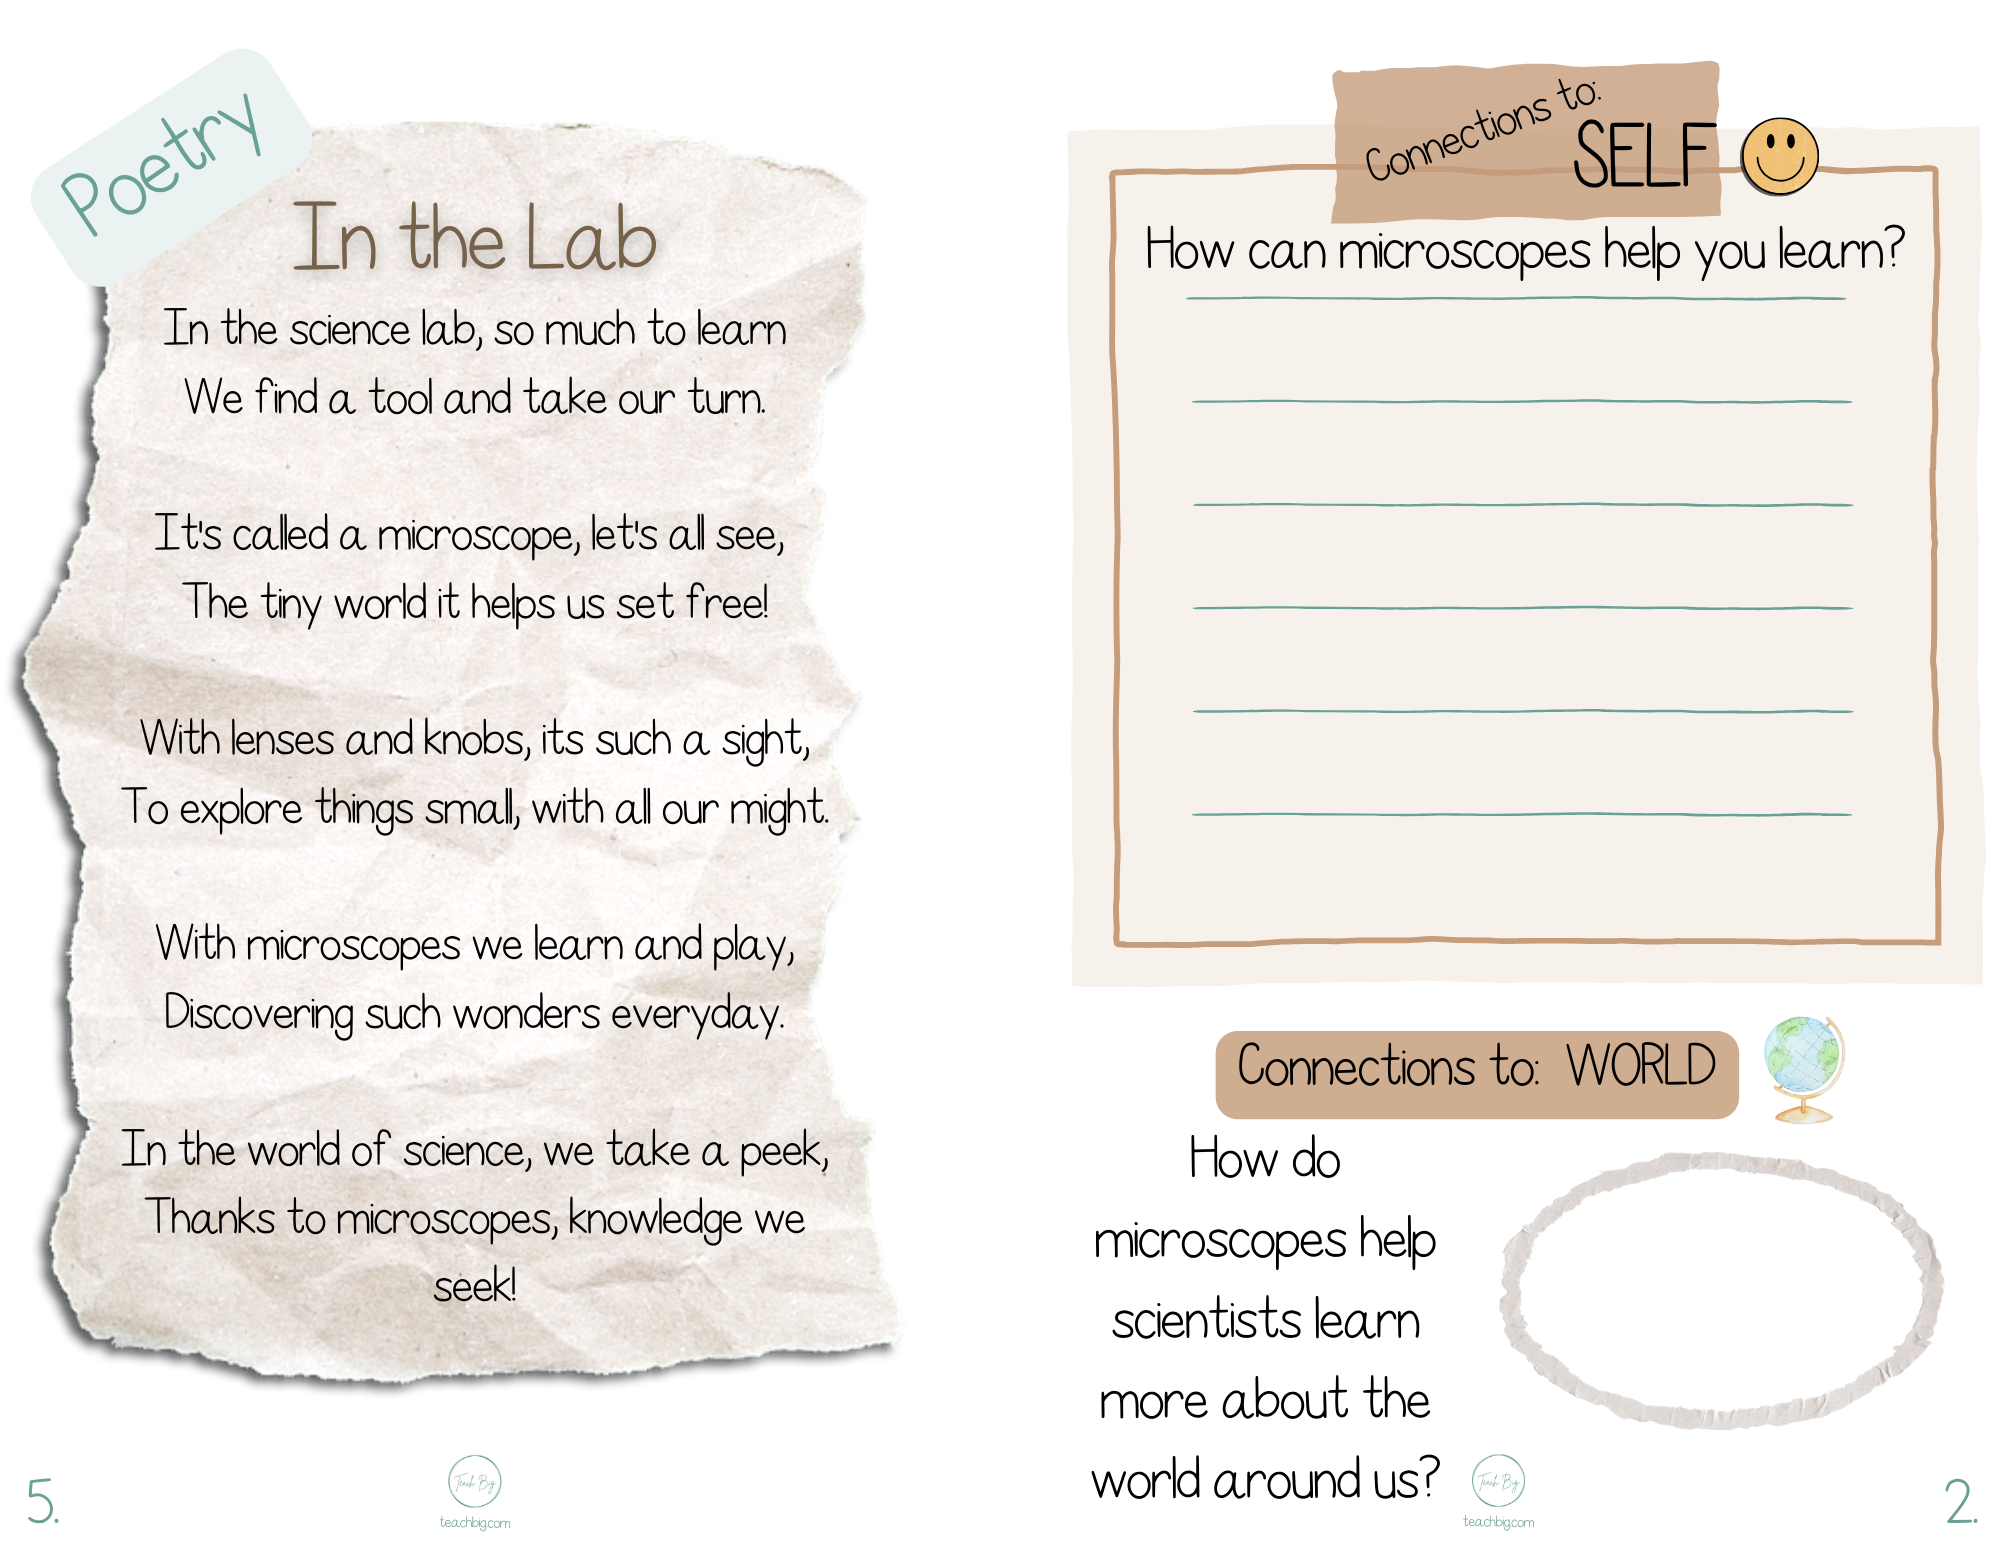 Poetry
In the Lab
In the science lab, so much to learn
We find a tool and take our turn.
It's called a microscope, let's all see,
The tiny world it helps us set free!
With lenses and knobs, its such a sight,
To explore things small, with all our might.
With microscopes we learn and play,
Discovering such wonders everyday.
In the world of science, we take a peek,
Thanks to microscopes, knowledge we
seek!
5.
Teach Big
teachbig.com
Connections to:
SELF
How can microscopes help you learn?
Connections to: WORLD
How do
microscopes help
scientists learn
more about the
world around us?
Teach Big
teachbig.com
2.